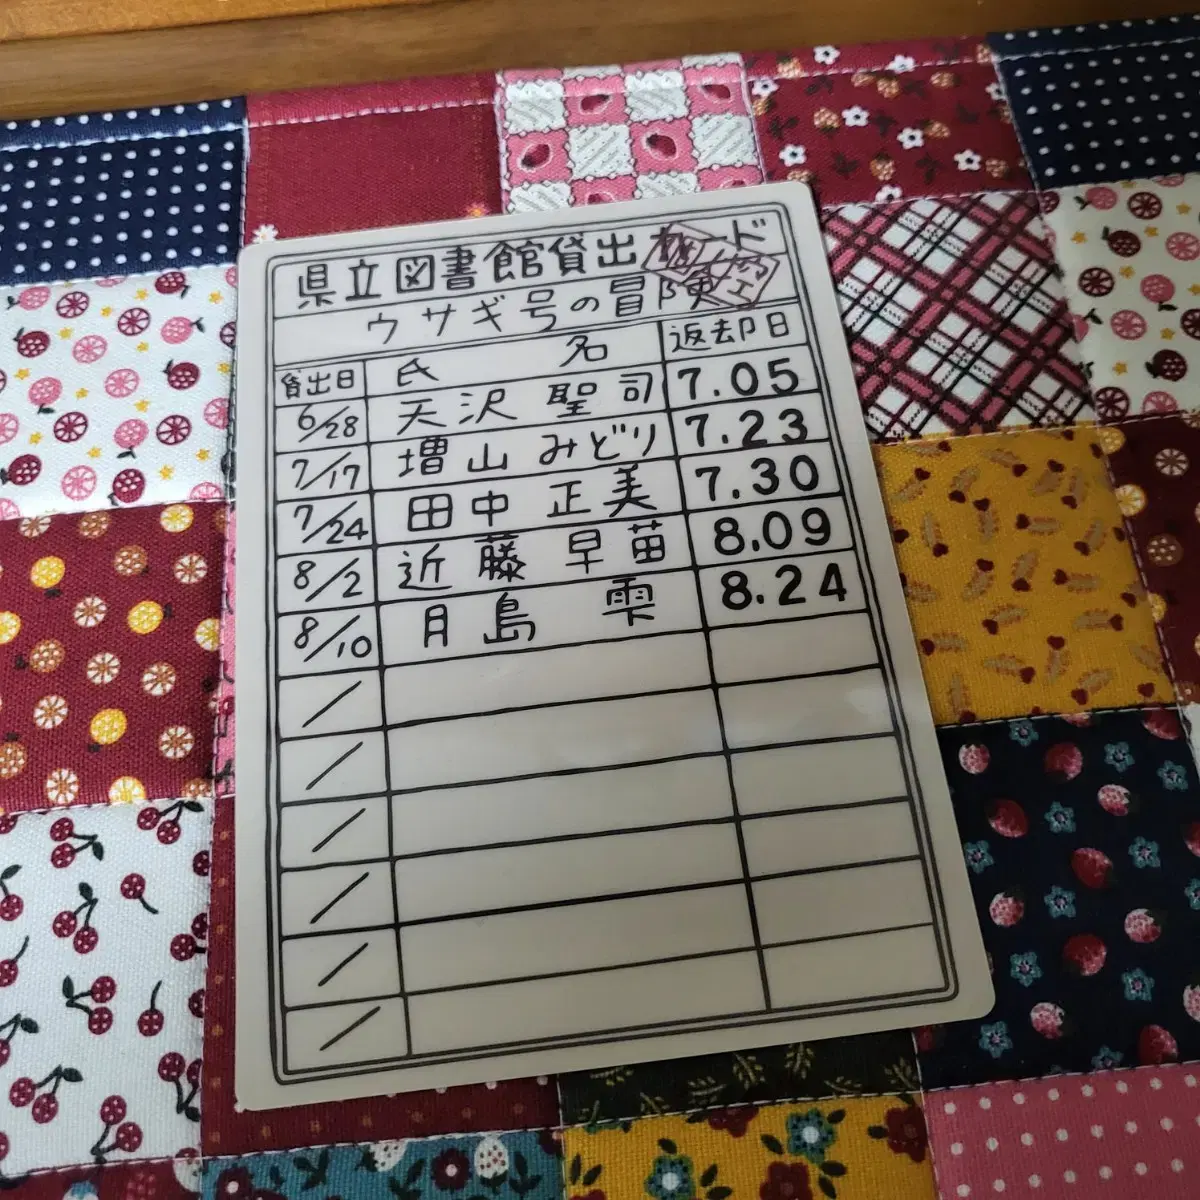 県立図書館貸出カード
ウサギ号の冒険
貸出日 氏 名 返却日
6/28 天沢 聖司 7.05
7/17 増山 みどり 7.23
7/24 田中 正美 7.30
8/2 近藤 早苗 8.09
8/10 月島 雫 8.24
/
/
/
/
/
/